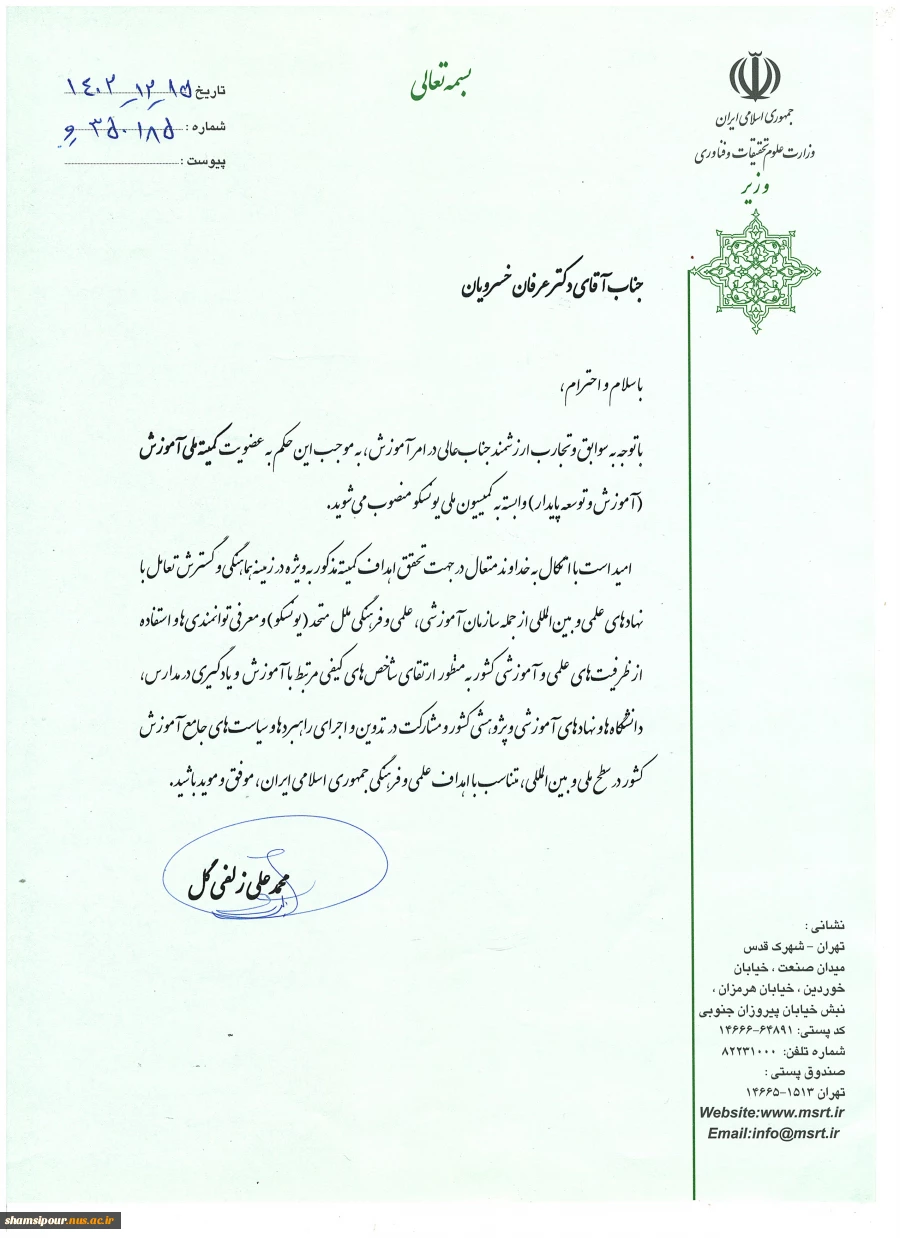 بسمه تعالی
جمهوری اسلامی ایران
وزارت علوم تحقیقات و فناوری
وزیر
تاریخ ۱۴۰۲_۱۲_۱۵
شماره : ۳۵۰۱۸۵ و
پیوست :
جناب آقای دکتر عرفان خسرویان
با سلام و احترام،
با توجه به سوابق و تجارب ارزشمند جناب‌عالی در امر آموزش، به موجب این حکم به عضویت کمیته ملی آموزش
(آموزش و توسعه پایدار) وابسته به کمیسیون ملی یونسکو منصوب می‌شوید.
امید است با اتکال به خداوند متعال در جهت تحقق اهداف کمیته مذکور به ویژه در زمینه هماهنگی و گسترش تعامل با
نهادهای علمی و بین‌المللی از جمله سازمان آموزشی، علمی و فرهنگی ملل متحد (یونسکو) و معرفی توانمندی‌ها و استفاده
از ظرفیت‌های علمی و آموزشی کشور به منظور ارتقای شاخص‌های کیفی مرتبط با آموزش و یادگیری در مدارس،
دانشگاه‌ها و نهادهای آموزشی و پژوهشی کشور و مشارکت در تدوین و اجرای راهبردها و سیاست‌های جامع آموزش
کشور در سطح ملی و بین‌المللی، متناسب با اهداف علمی و فرهنگی جمهوری اسلامی ایران، موفق و موید باشید.
محمدعلی زلفی گل
نشانی :
تهران - شهرک قدس
میدان صنعت ، خیابان
خوردین ، خیابان هرمزان ،
نبش خیابان پیروزان جنوبی
کد پستی: ۶۴۸۹۱-۱۴۶۶۶
شماره تلفن: ۸۲۲۳۱۰۰۰
صندوق پستی :
تهران ۱۵۱۳-۱۴۶۶۵
Website:www.msrt.ir
Email:info@msrt.ir
shamsipour.nus.ac.ir